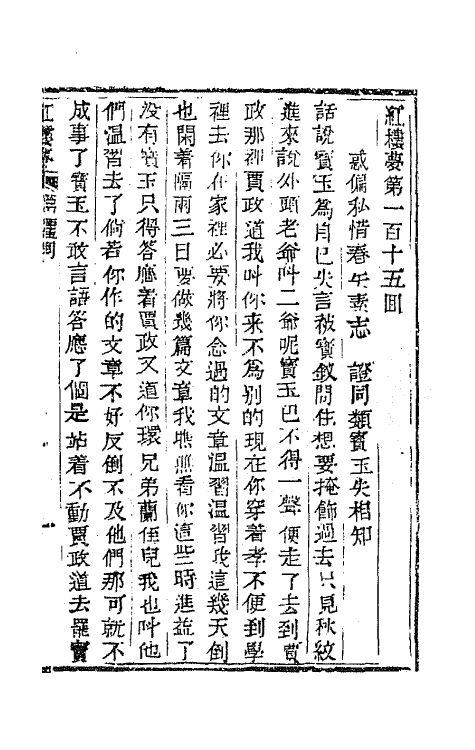 紅樓夢第一百十五囘
惑偏私惜春矢素志　證同類寶玉失相知
話說寶玉爲自己失言被寶釵問住想要掩飾過去只見秋紋
進來說外頭老爺叫二爺呢寶玉巴不得一聲便走了去到賈
政那裡賈政道我叫你來不爲別的現在你穿着孝不便到學
裡去你在家裡必要將你念過的文章溫習溫習我這幾天倒
也閑着隔兩三日要做幾篇文章我瞧瞧看你這些時進益了
没有寶玉只得答應着賈政又道你環兄弟蘭侄兒我也叫他
們溫習去了倘若你作的文章不好反倒不及他們那可就不
成事了寶玉不敢言語答應了個是站着不動賈政道去罷寶
紅樓夢　第
一